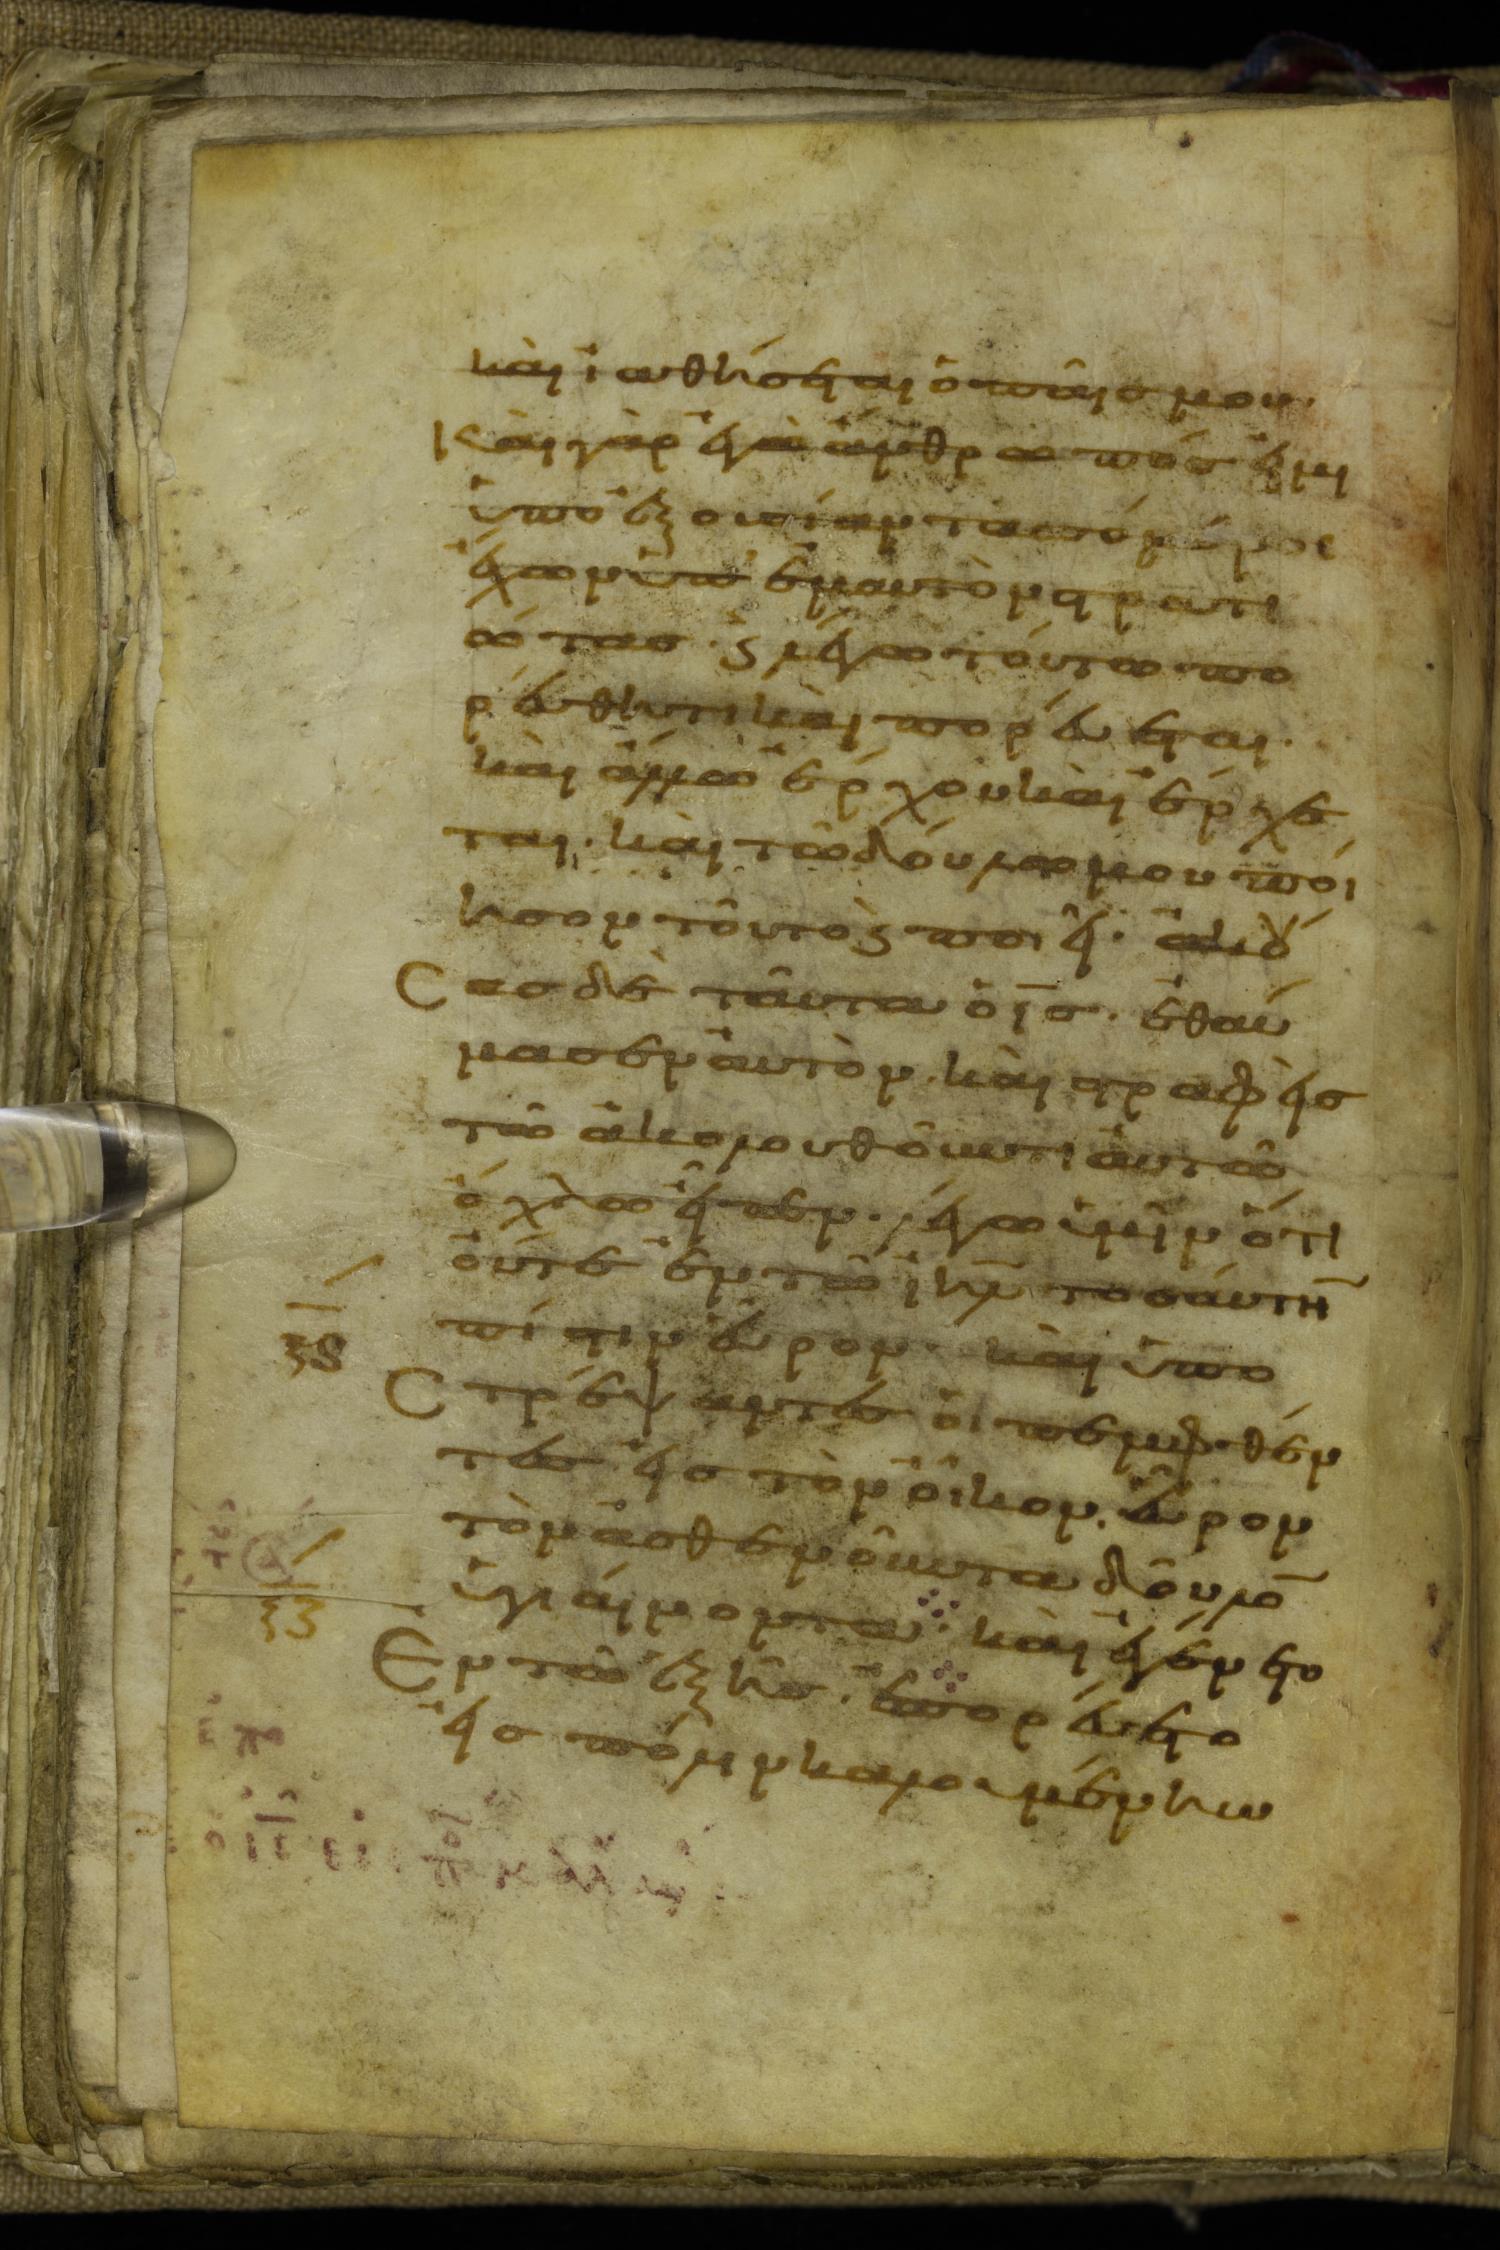 καὶ ἰαθήσεται ὁ παῖς μου.
Καὶ γὰρ ἐγὼ ἄνθρωπός εἰμι
ὑπὸ ἐξουσίαν τασσόμενος
ἔχων ὑπ' ἐμαυτὸν στρατι
ώτας· ϗ λέγω τούτω πο
ρεύθητι καὶ πορεύεται·
καὶ ἄλλω ἔρχου καὶ ἔρχε
ται· καὶ τῶ δούλω μου ποί
ησον τοῦτο ϗ ποιεῖ· ἀκού
Σας δὲ ταῦτα ὁ ι̅ς̅· ἐθαύ
μασεν αὐτὸν· καὶ στραφεὶς
τῶ ἀκολουθοῦντι αὐτῶ
ὄχλω εἶπεν· λέγω ὑμῖν ὅτι
οὔτε ἐν τῶ ι̅η̅λ̅ τοσαύτην
πίστιν εὗρον· καὶ ὑπο
Στρέψαντες οἱ πεμφθέν
τες εἰς τὸν οἶκον· εὗρον
τὸν ἀσθενοῦντα δοῦλο̅
ὑγιαίνοντα· καὶ ἐγένετο
Ἐν τῶ ἑξῆς· ἐπορεύετο
εἰς πόλιν καλουμένην
ξϛ
ξζ